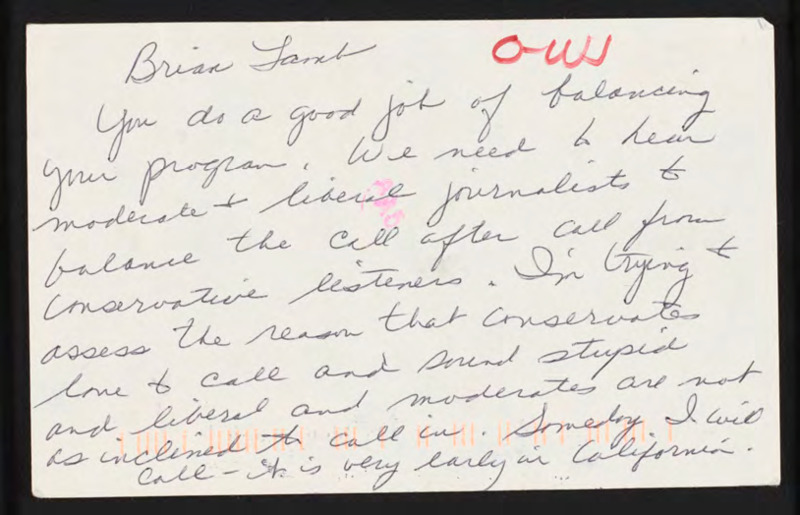 Brian Lamb
OW
You do a good job of balancing
your program. We need to hear
moderate + liberal journalists to
balance the call after call from
conservative listeners. I'm trying to
assess the reason that conservates
love to call and sound stupid
and liberal and moderates are not
as inclined to call in. Someday I will
call - it is very early in California.